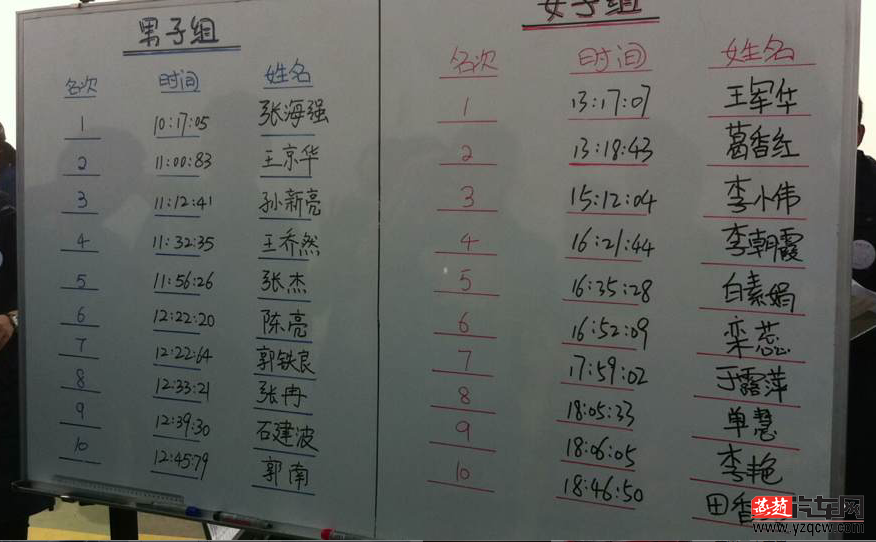 男子组
名次 时间 姓名
1 10:17:05 张海强
2 11:00:83 王京华
3 11:12:41 孙新亮
4 11:32:35 王乔然
5 11:56:26 张杰
6 12:22:20 陈亮
7 12:22:64 郭铁良
8 12:33:21 张冉
9 12:39:30 石建波
10 12:45:79 郭南
女子组
名次 时间 姓名
1 13:17:07 王军华
2 13:18:43 葛香红
3 15:12:04 李小伟
4 16:21:44 李朝霞
5 16:35:28 白素娟
6 16:52:09 栾蕊
7 17:59:02 于露萍
8 18:05:33 单慧
9 18:06:05 李艳
10 18:46:50 田香
燕赵汽车网
www.yzqcw.com